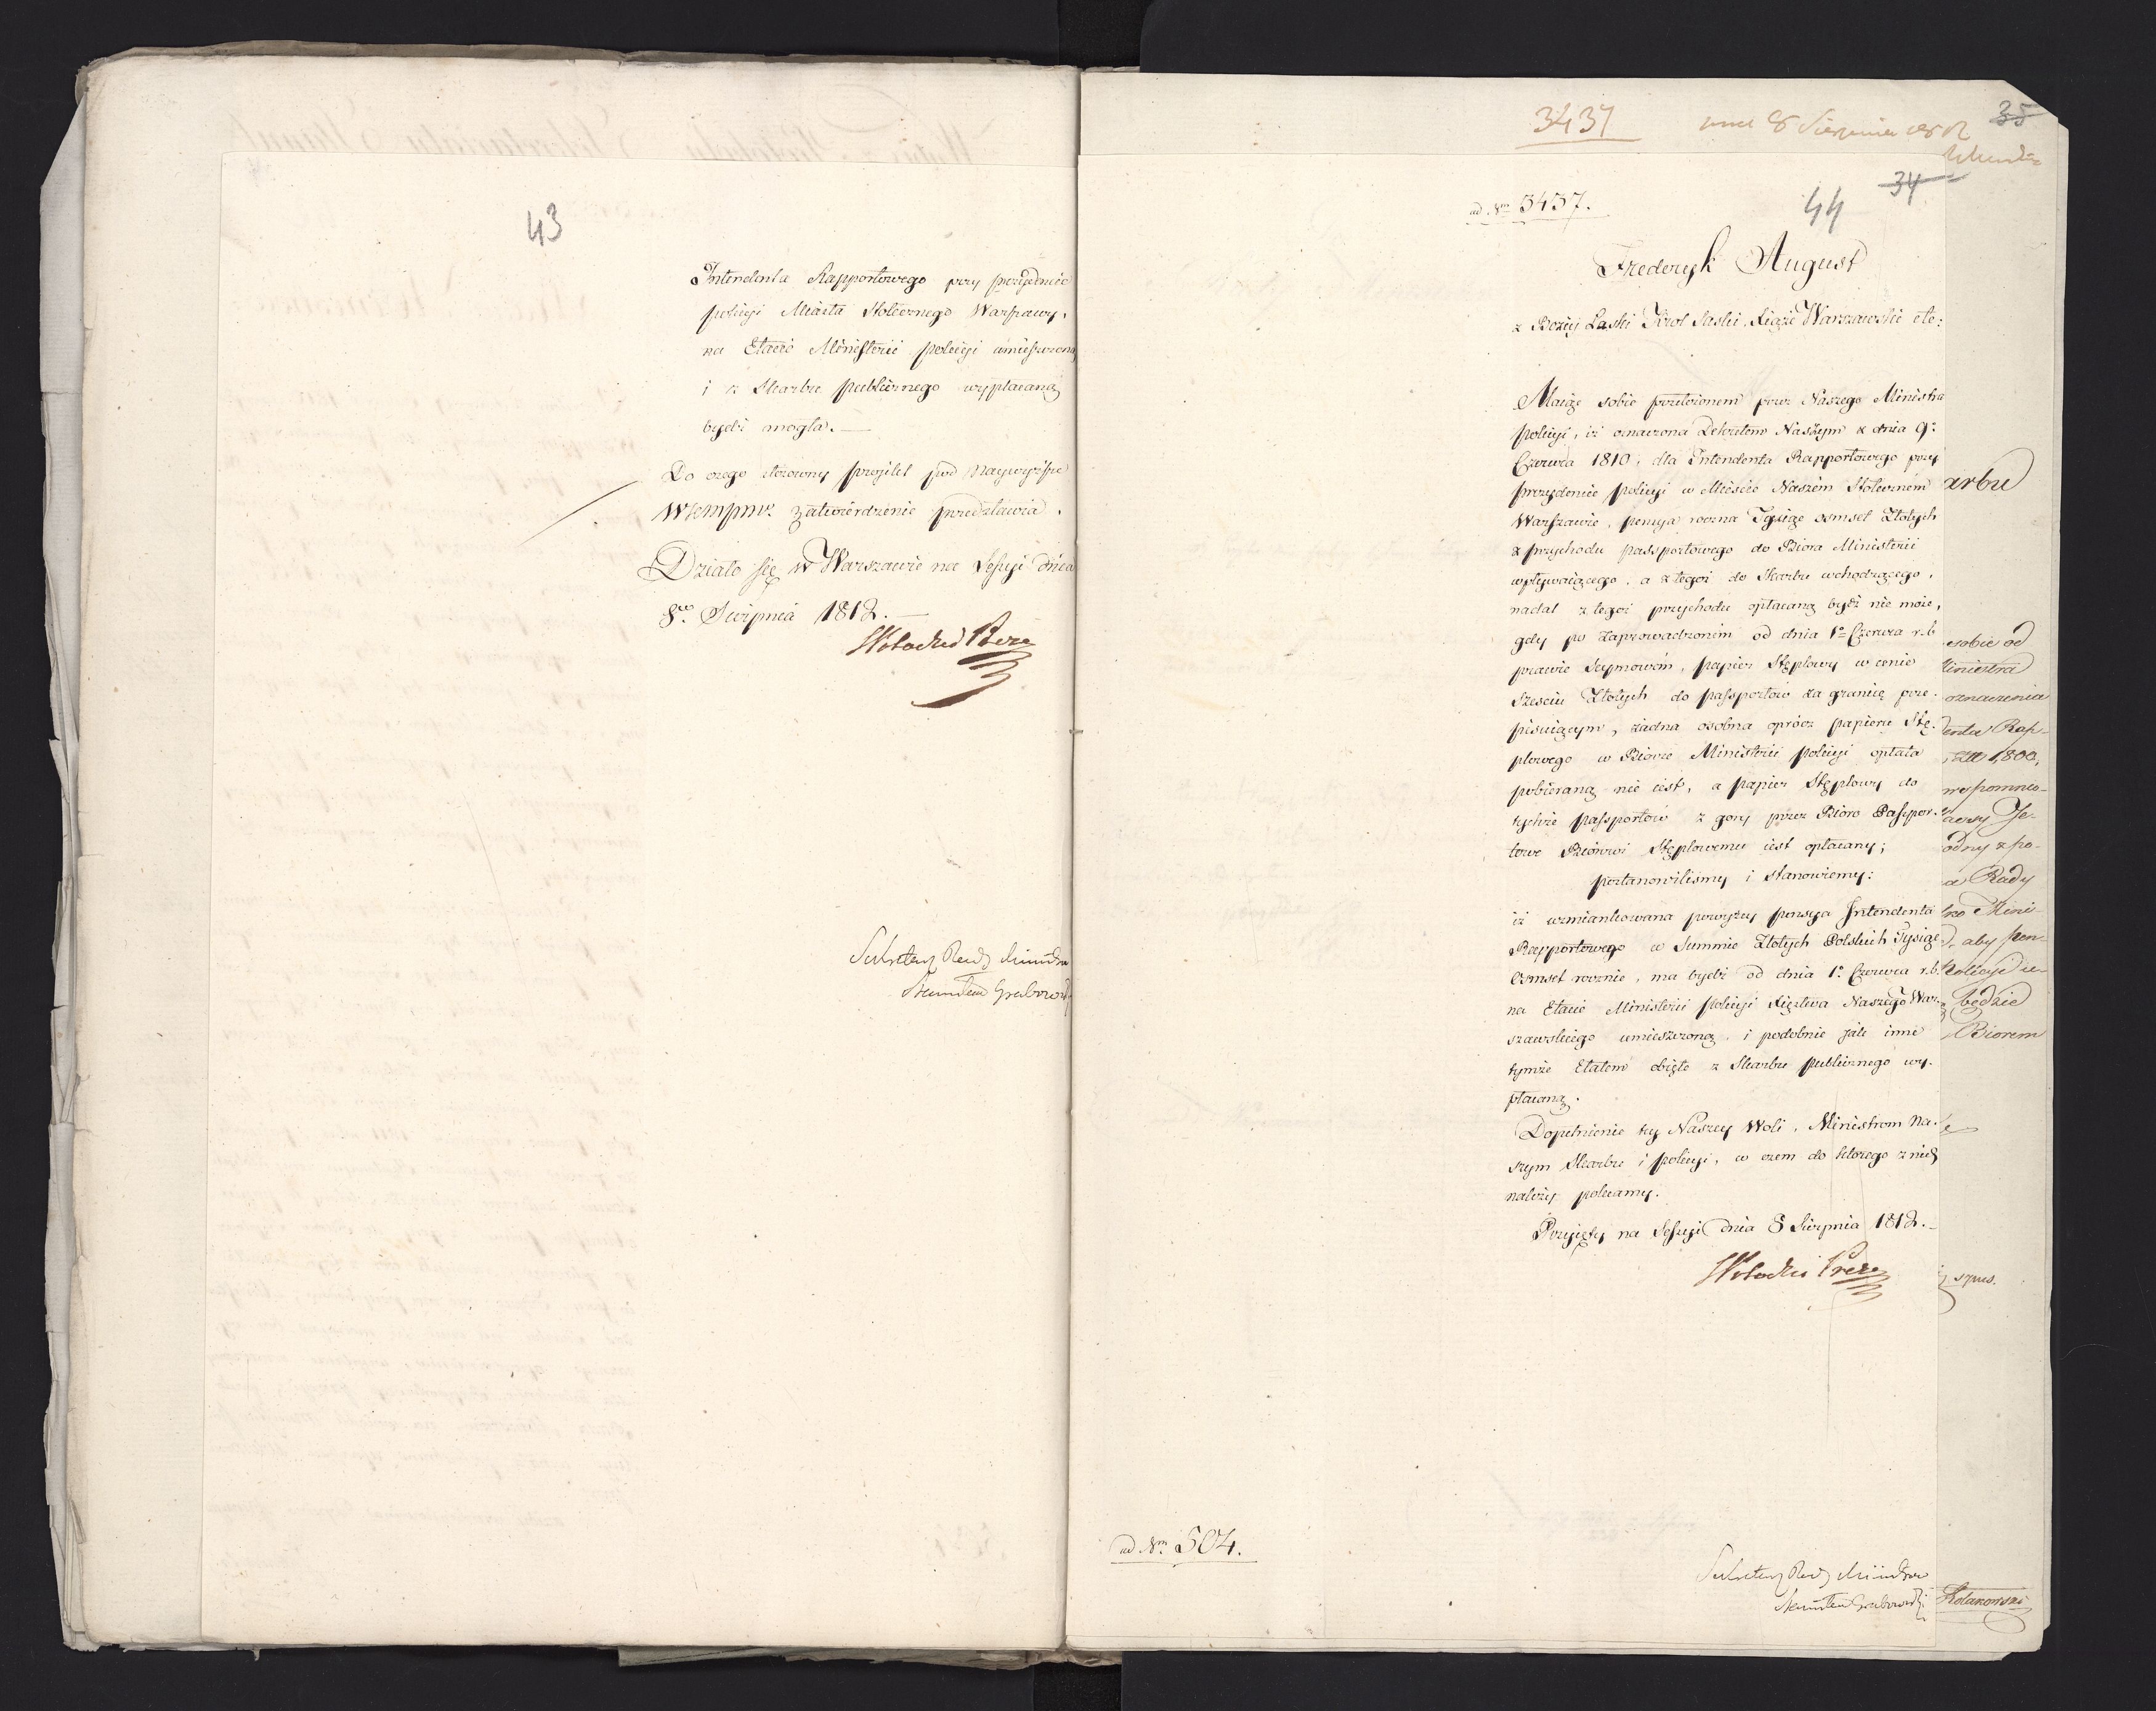 43
Intendenta Rapportowego przy prezydencie
policyi Miasta Stołecznego Warszawy,
na Etacie Ministerii policyi umieszczoną
i z Skarbu publicznego wypłacaną
bydź mogła. —
Do czego stosowny proiekt pod Naywyższe
WKMPmk zatwierdzenie przedstawia.
Działo się w Warszawie na Sessyi dnia
8go Sierpnia 1812. —
Sekretarz Rady Ministrow
Stanisław Grabowski
3437
8 Sierpnia
35
34
44
ad Nm 3437.
Frederyk August
z Bożey Łaski Krol Saski, Xiąże Warszawski etc:
Maiąc sobie przełożonem przez Naszego Ministra
policyi, iż oznaczona Dekretem Naszym z dnia 9o
Czerwca 1810, dla Intendenta Rapportowego przy
prezydencie policyi w Mieście Naszém Stołeczném
Warszawie, pensya roczna Tysiąc osmset Złotych
z przychodu passportowego do Biora Ministerii
wpływaiącego, a z tegoż do Skarbu wchodzącego,
nadal z tegoż przychodu opłacaną bydź nie może,
gdy po zaprowadzoném od dnia 1o Czerwca r.b
prawie Seymowém, papier Stęplowy w cenie
Sześciu Złotych do passportów za granicę prze-
pisuiącym, żadna osobna oprócz papieru Stę-
plowego w Biorze Ministerii policyi opłata
pobieraną nie iest, a papier Stęplowy do
tychże passportów z gory przez Bióro Passpor-
towe Biórowi Stęplowemu iest opłacany;
postanowiliśmy i stanowiemy:
iż wzmiankowana powyżey pensya Intendenta
Rapportowego w Summie Złotych Polskich Tysiąc
Osmset rocznie, ma bydź od dnia 1o Czerwca r.b.
na Etacie Ministerii policyi Xięztwa Naszego War-
szawskiego umieszczoną, i podobnie jak inne
tymże Etatem obięte z Skarbu publicznego wy-
płacaną.
Dopełnienie tey Naszey Woli, Ministrom Na-
szym Skarbu i policyi, w czem do ktorego z nich
należy polecamy.
Przyięty na Sessyi dnia 8 Sierpnia 1812. —
ad Nm 504.
Sekretarz Rady Ministrow
Stanisław Grabowski
arbu
sobie od
Ministra
oznaczenia
denta Rap-
Złł 1,800,
wspomnio-
odny z po-
a Rady
aby pen-
będzie
Biorem